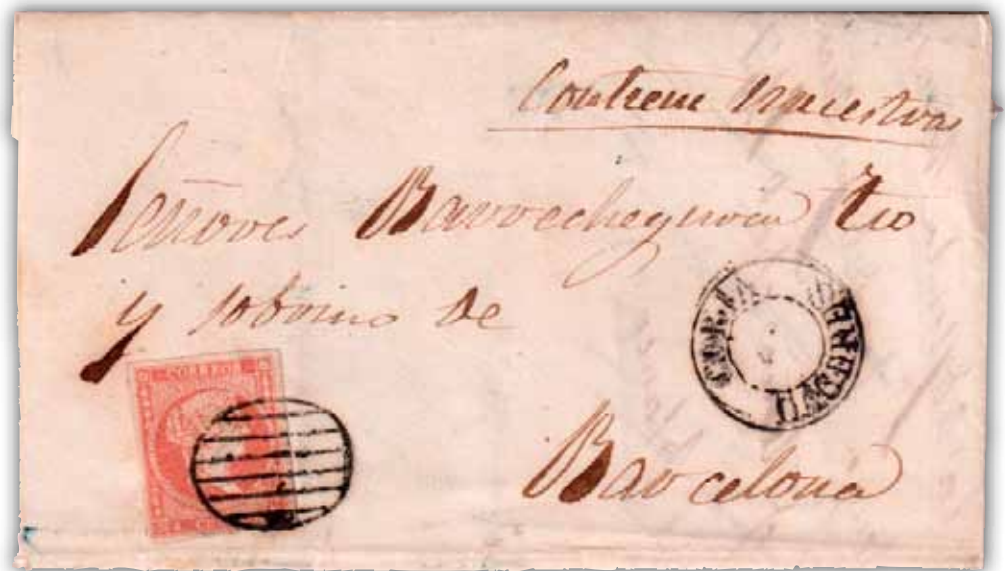 Contiene muestras
Señores Barrechegurren Tio
y sobrino de
CORREOS
Barcelona